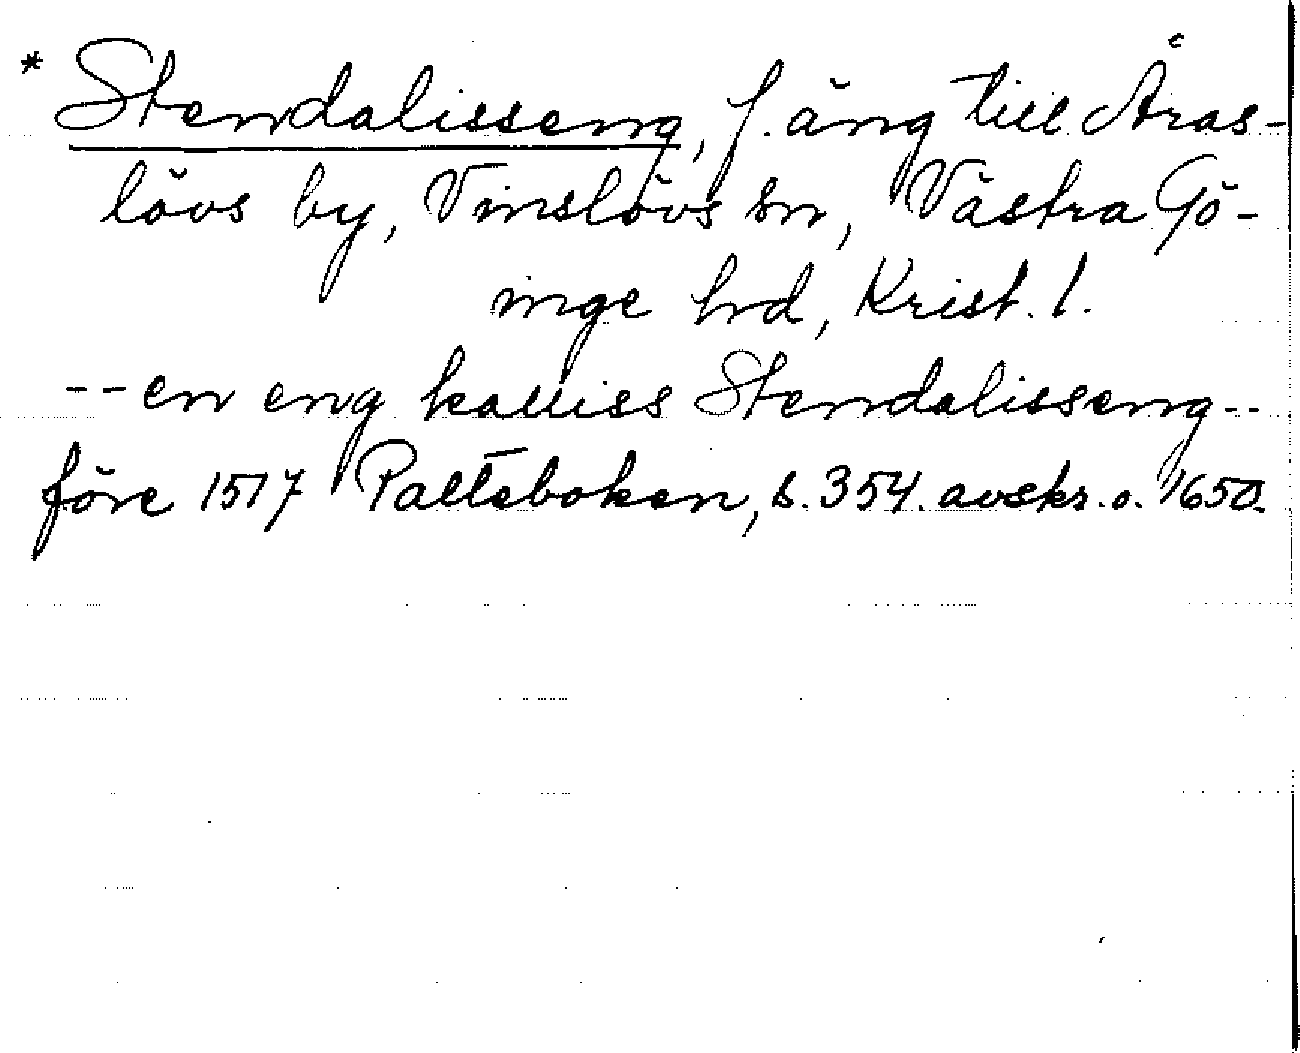 * Stendalisseng, f. äng till Åras-
lövs by, Vinslövs sn, Västra Gö-
inge hrd, Krist. l.
-- en eng kalliss Stendalisseng --
före 1517 Palteboken, s. 354. avskr. o. 1650.